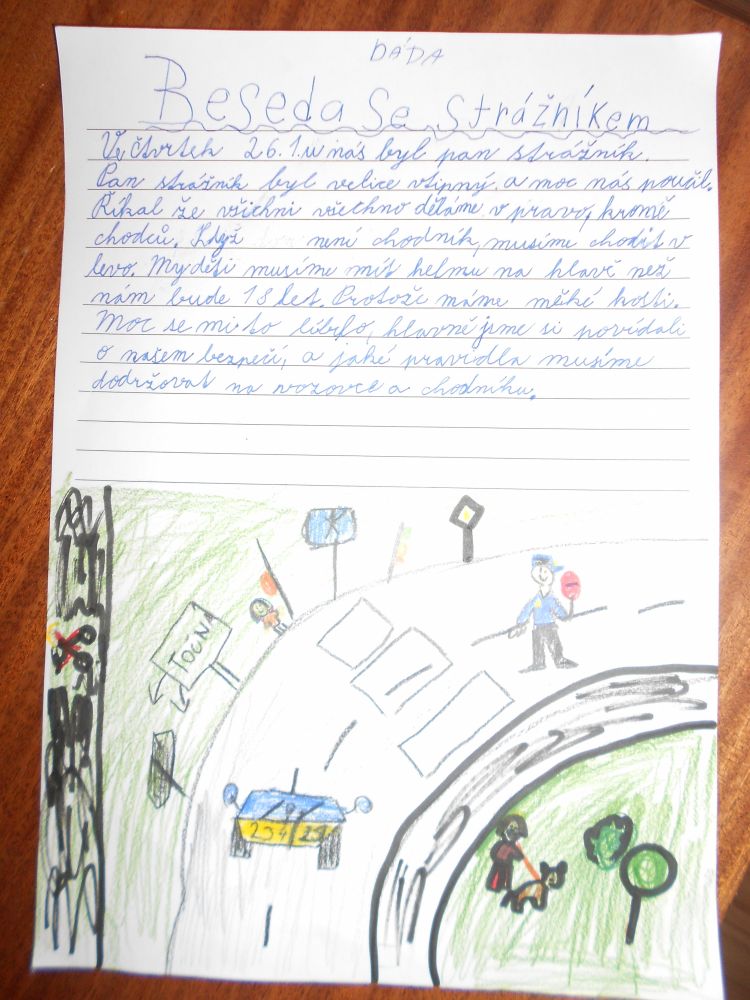 DÁĎA
Beseda se strážníkem
Ve čtvrtek 26.1. u nás byl pan strážník.
Pan strážník byl velice vtipný a moc nás poučil.
Říkal že všichni všechno děláme v pravo, kromě
chodců. Když není chodník, musíme chodit v
levo. My děti musíme mít helmu na hlavě než
nám bude 18 let. Protože máme měké kosti.
Moc se mi to líbílo, hlavně jsme si povídali
o našem bezpečí, a jaké pravidla musíme
dodržovat na vozovce a chodníku.
TOČNA
294 29